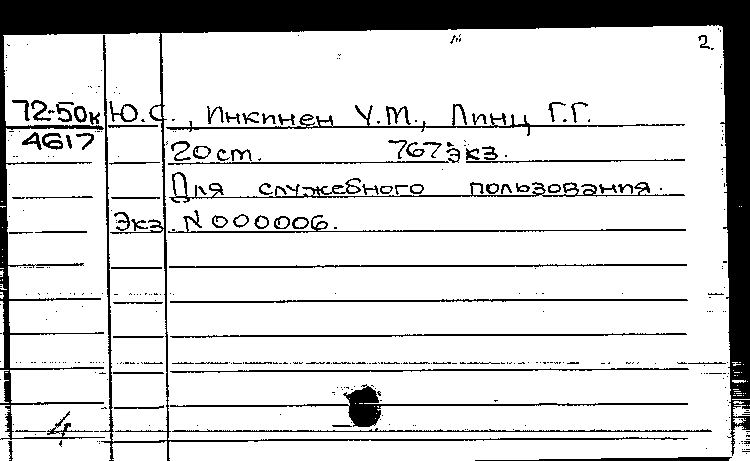 2
72-50к Ю.С., Инкинен У.М., Линц Г.Г.
4617
20 ст. 767 экз.
Для служебного пользования.
Экз N 000006.
4